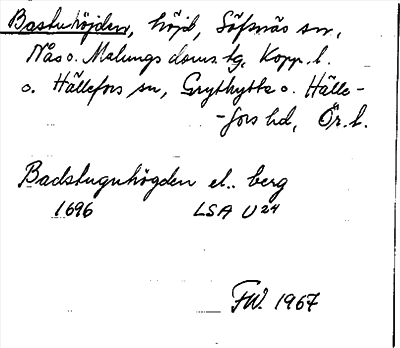 Bastuhöjden, höjd, Säfsnäs sn,
Nås o. Malungs doms.tg, Kopp. l.
o. Hällefors sn, Grythytte o. Hälle-
-fors hd, Ör. l.
Badstuguhögden el. berg
1696 LSA U24
FW. 1967